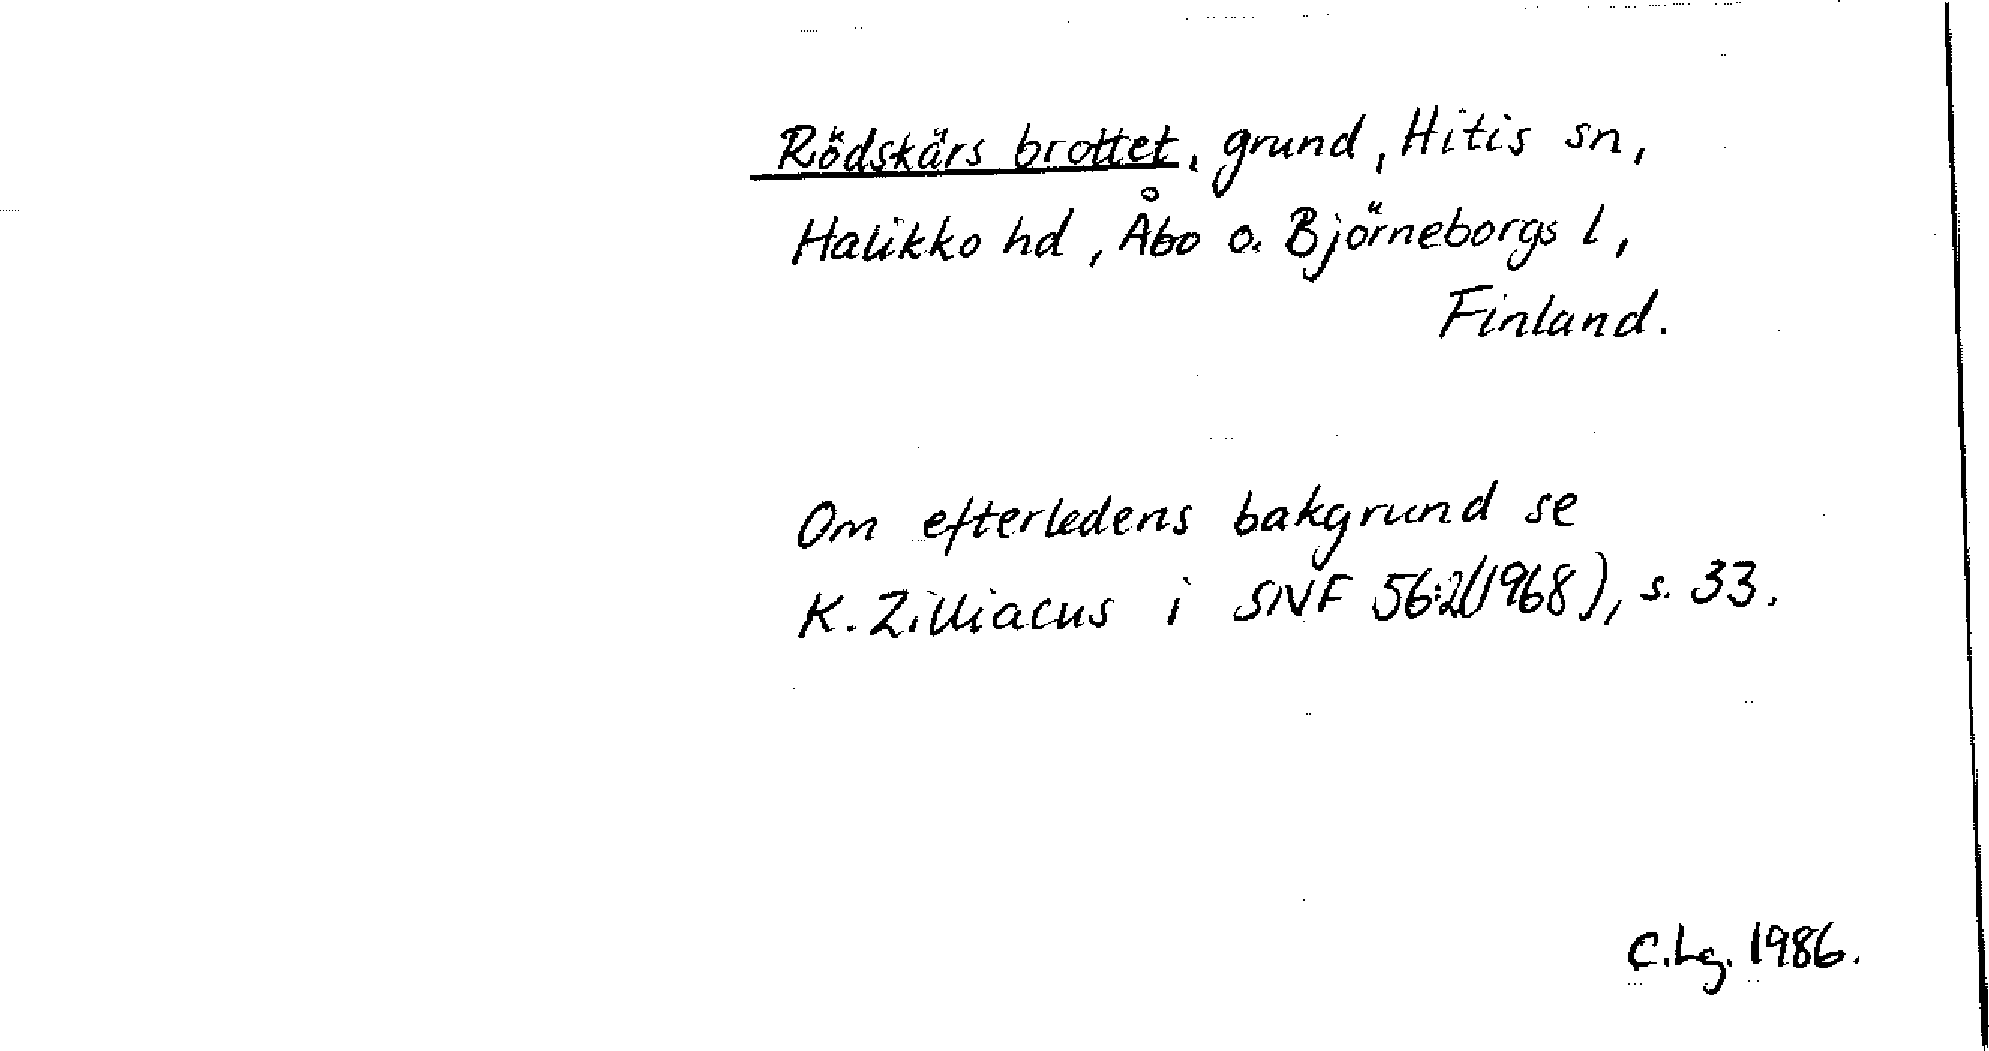 Rödskärs brottet, grund, Hitis sn,
Halikko hd, Åbo o. Björneborgs l,
Finland.
Om efterledens bakgrund se
K. Zilliacus i SNF 56:2(1968), s. 33.
C.Lg. 1986.